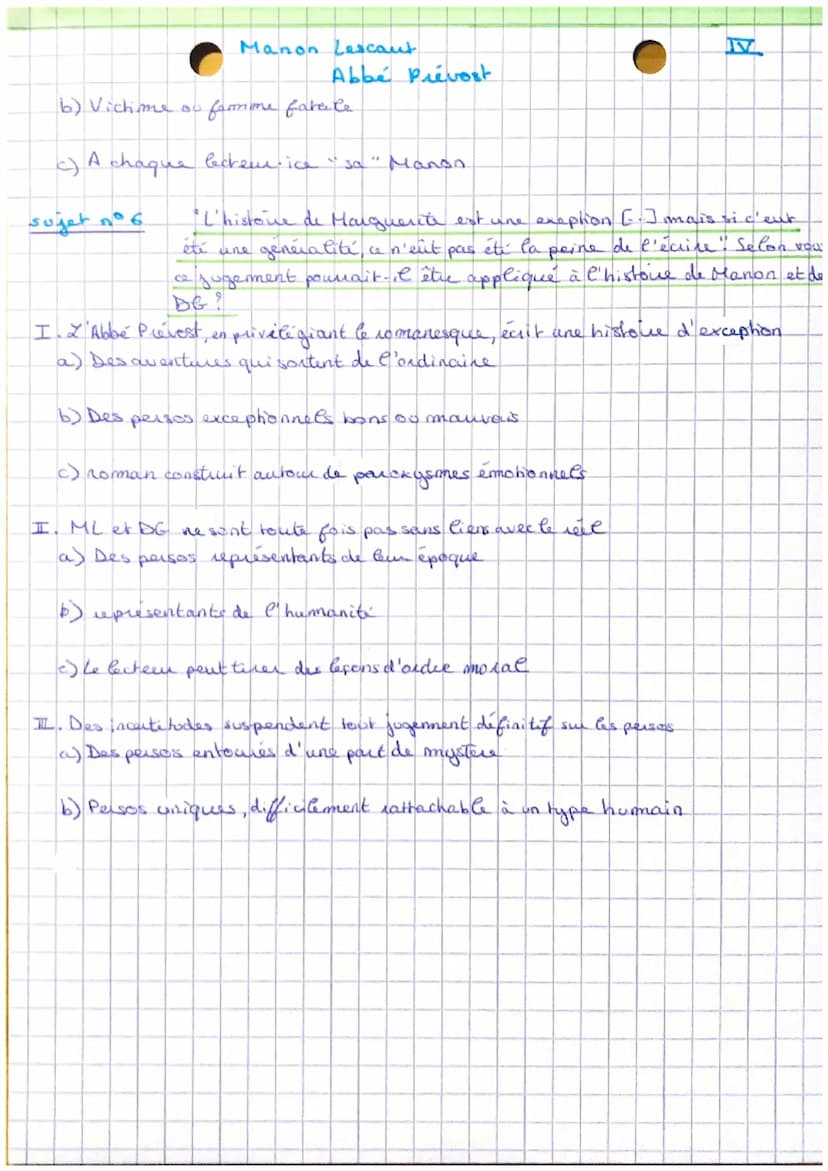 Manon Lescaut
IV
Abbé Prévost
b) Victime ou femme fatale
c) A chaque lecteur·ice "sa" Manon
sujet n° 6 "L'histoire de Marguerite est une exeption [..] mais si c'eut
été une généralité, ce n'eût pas été la peine de l'écrire". Selon vous
ce jugement pourrait-il être appliqué à l'histoire de Manon et de
DG ?
I. L'Abbé Prévost, en privilégiant le romanesque, écrit une histoire d'exception
a) Des aventures qui sortent de l'ordinaire
b) Des persos exceptionnels bons ou mauvais
c) roman construit autour de paroxysmes émotionnels
II. ML et DG ne sont toute fois pas sans liens avec le réel
a) Des persos représentants de leur époque
b) représentants de l'humanité
c) Le lecteur peut tirer des leçons d'ordre moral
III. Des incertitudes suspendent tout jugement définitif sur les persos
a) Des persos entourés d'une part de mystère
b) Persos uniques, difficilement rattachable à un type humain